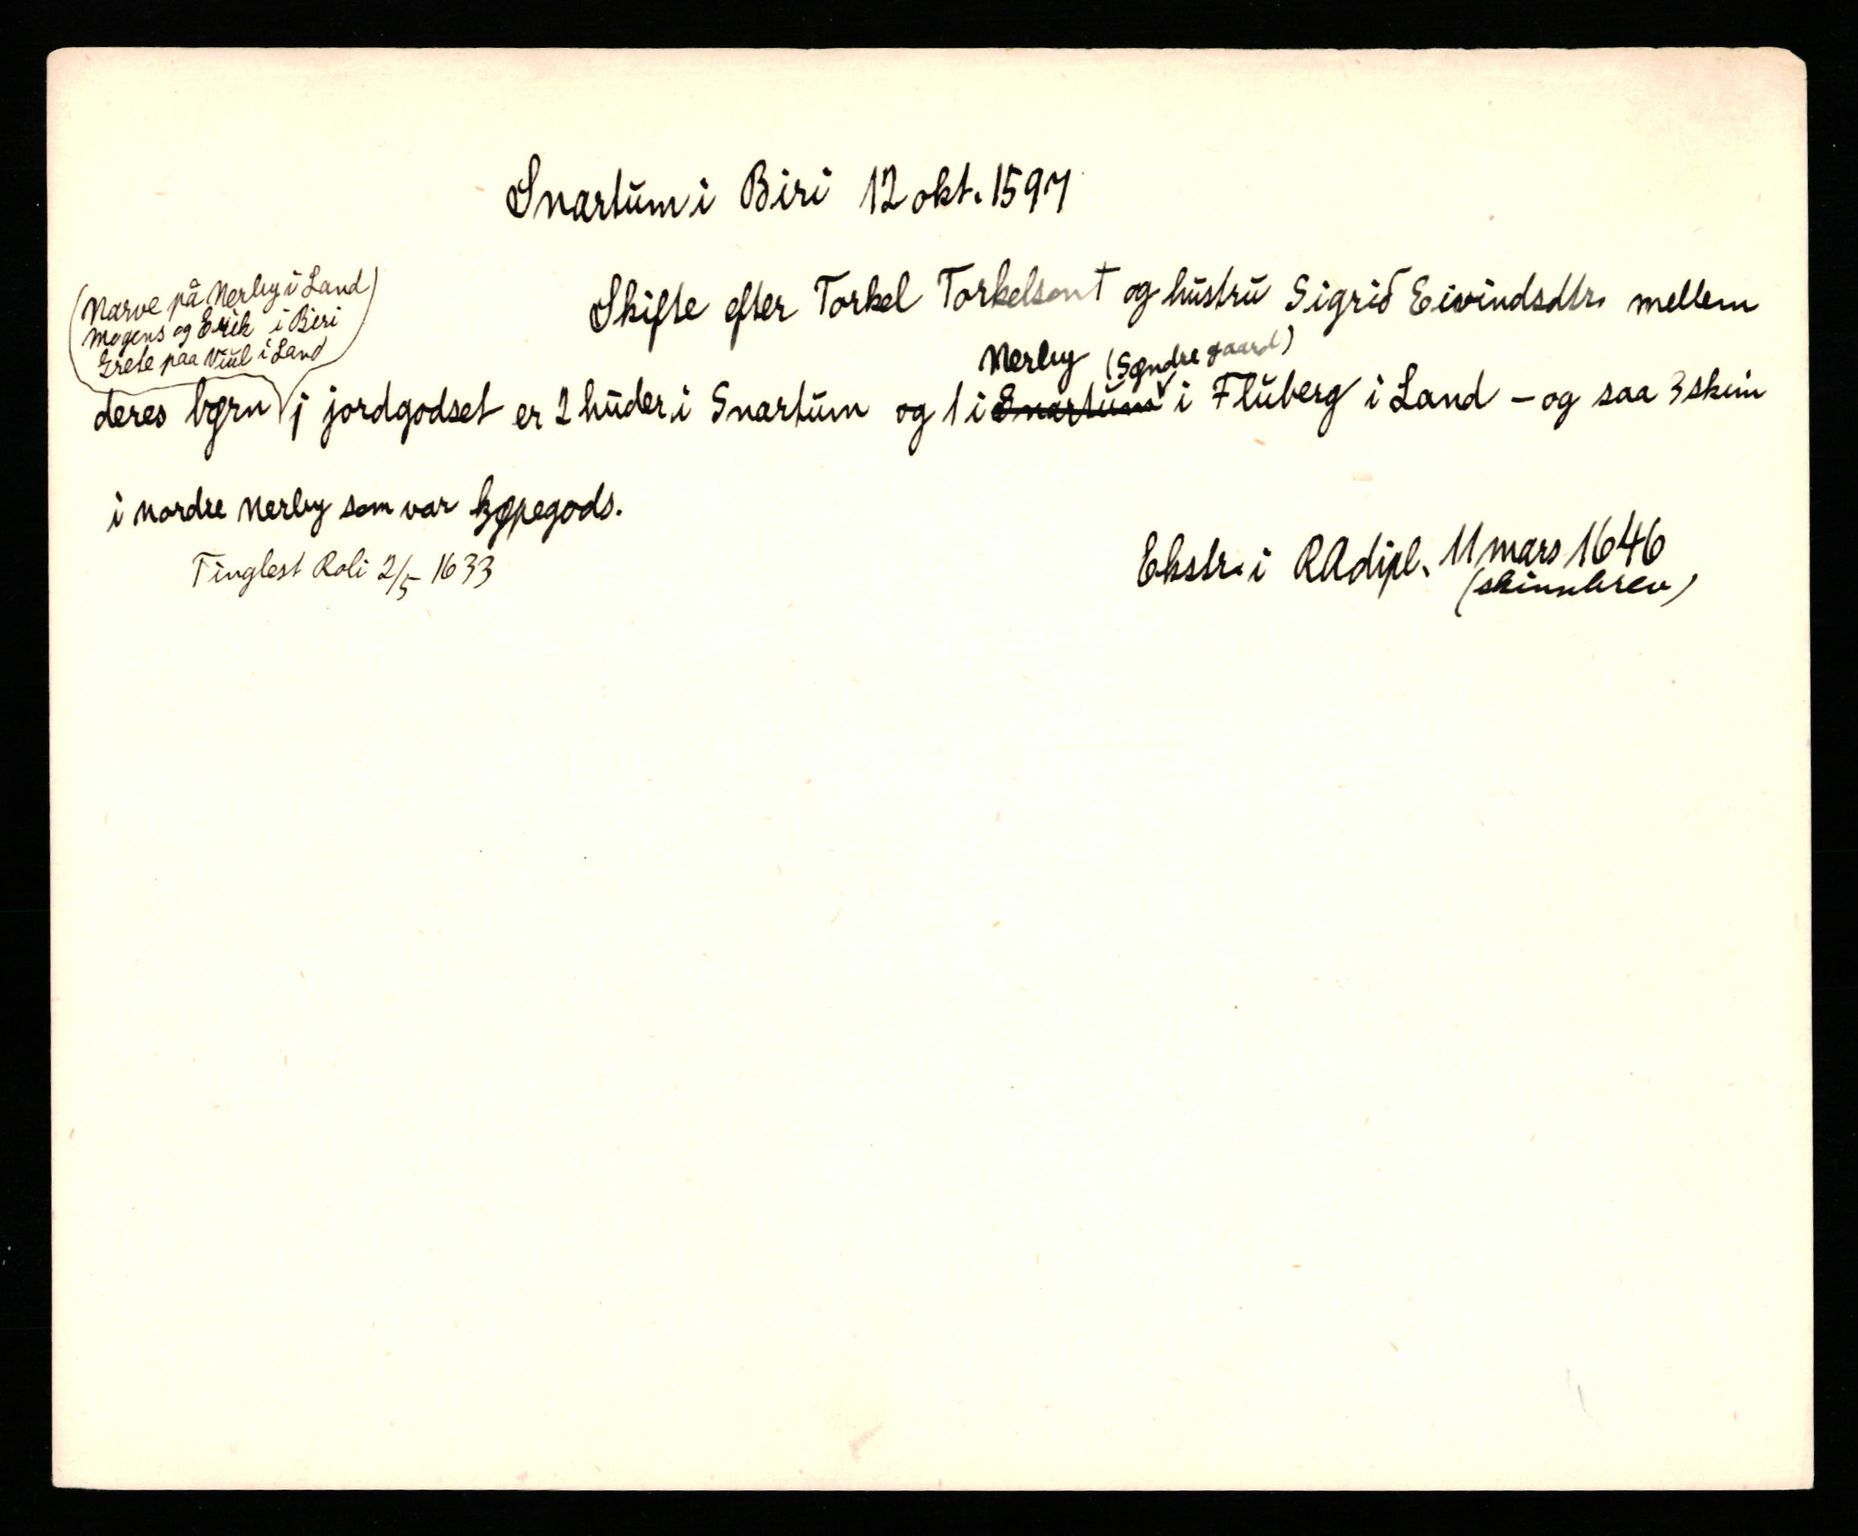 Snartum i Biri 12 okt. 1597
(Narve på Nerby i Land)
Mogens og Erik i Biri
Grete paa Viul i Land
Skifte efter Torkel Torkelsen † og hustru Sigrid Eivindsdtr. mellem
Nerby (Søndre gaard)
deres børn i jordgodset er 2 huder i Snartum og 1 i Snartum i Fluberg i Land - og saa 3 skin
i nordre Nerby som var kjøpegods.
Tinglest Roli 2/5 1633
Ekstr. i RAdipl. 11 mars 1646
(skinnbrev)